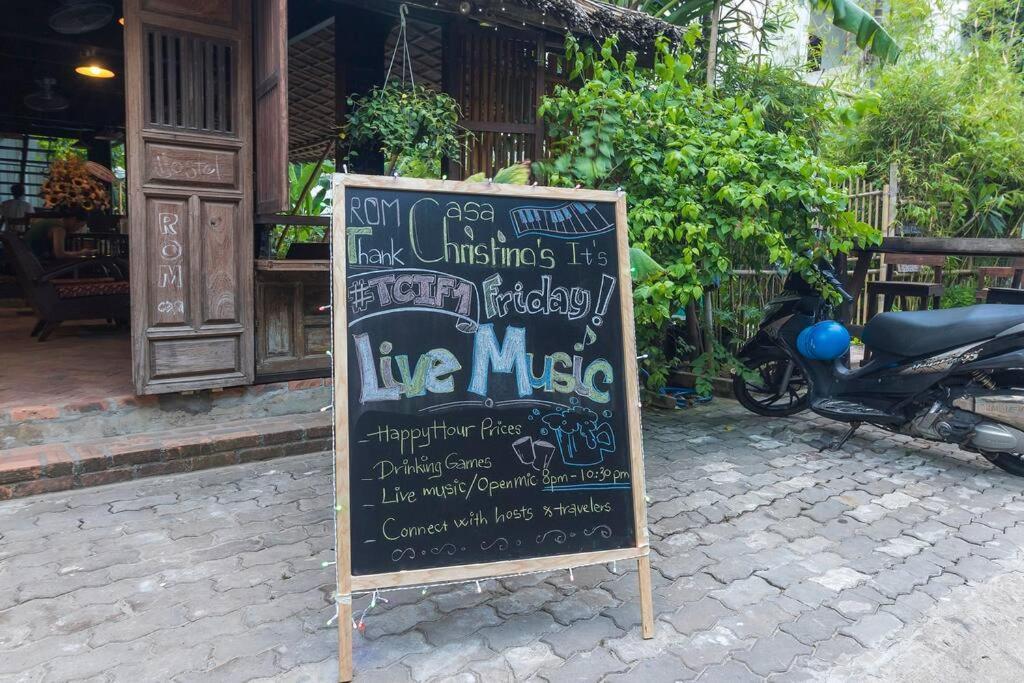 Hostel
ROM
ROM Casa
Thank Christina's It's
#TCIF! Friday!
Live Music
- Happy Hour Prices
- Drinking Games
- Live music/Open mic 8pm - 10:30pm
- Connect with hosts & travelers